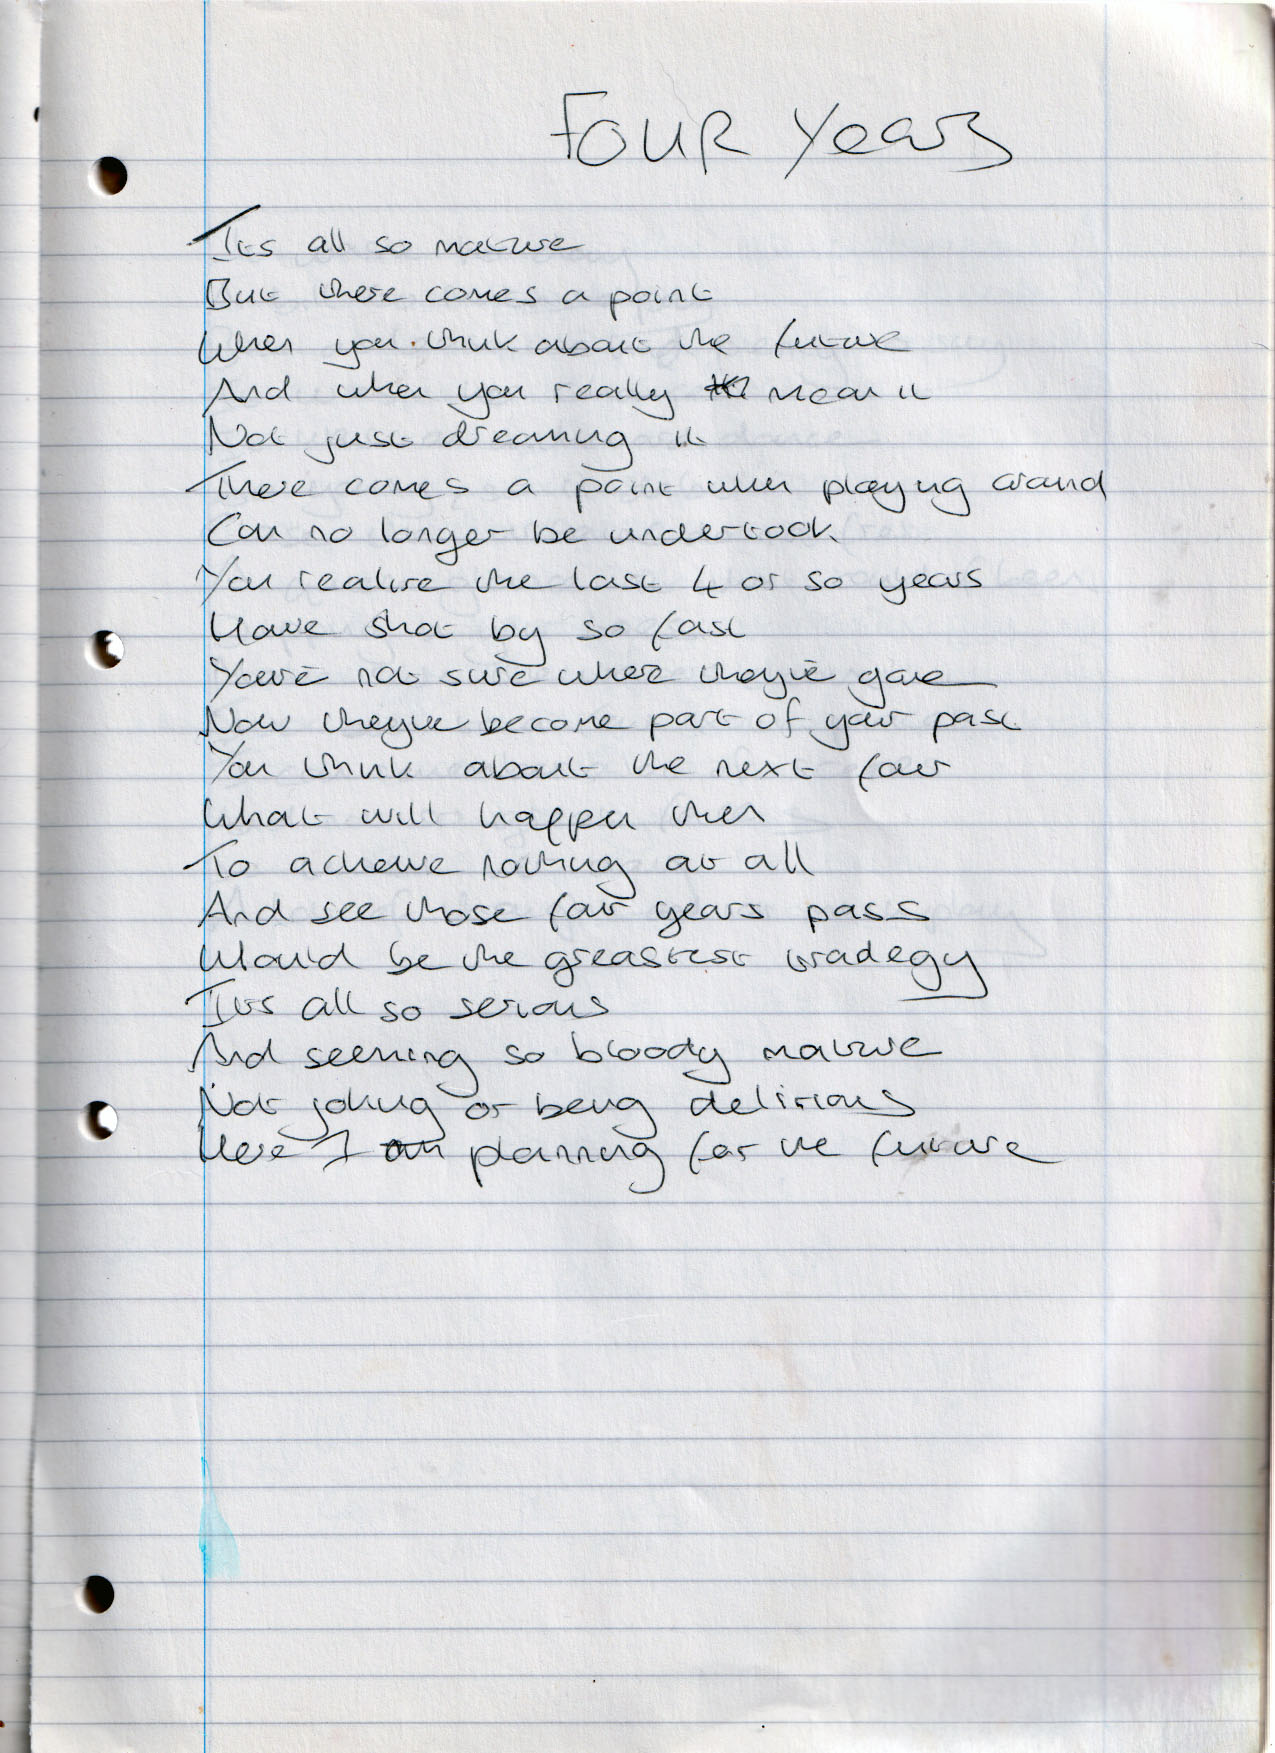 FOUR Years
It's all so mature
But there comes a point
When you think about the future
And when you really mean it
Not just dreaming it
There comes a point when playing around
Can no longer be undertook
You realise the last 4 or so years
Have shot by so fast
You're not sure where they've gone
Now they've become part of your past
You think about the next four
What will happen then
To achieve nothing at all
And see those four years pass
Would be the greastest tradegy
It's all so serious
And seeming so bloody mature
Not joking or being delirious
Here I am planning for the future